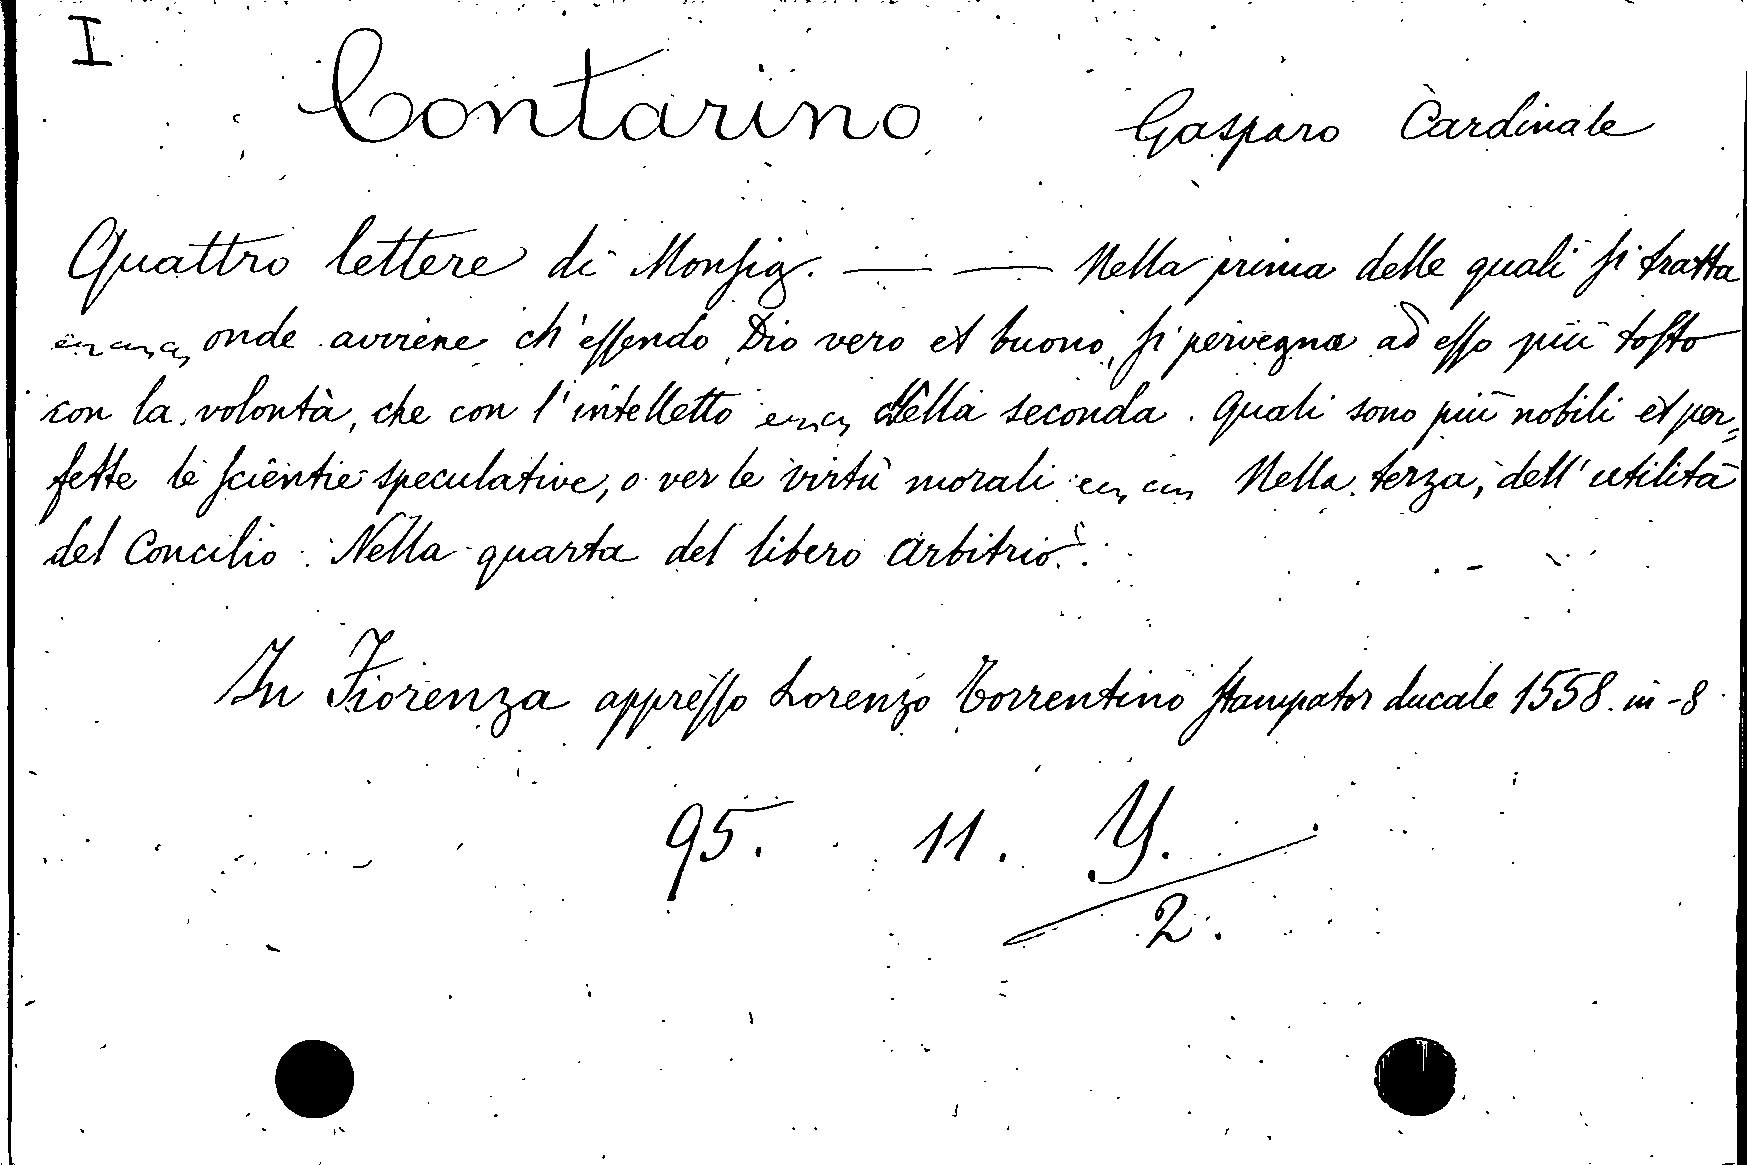 I
Contarino Gasparo Cardinale
Quattro lettere di Monsig. — — Nella prima delle quali si tratta
onde avviene ch'essendo Dio vero et buono, si pervegna ad esso più tosto
con la volontà, che con l'intelletto Nella seconda. Quali sono più nobili et per=
fette le scientie speculative, o ver le virtù morali Nella terza, dell'utilità
del Concilio. Nella quarta del libero arbitrio.
In Fiorenza appresso Lorenzo Torrentino stampator ducale 1558. in-8
95. 11. Y.
2.